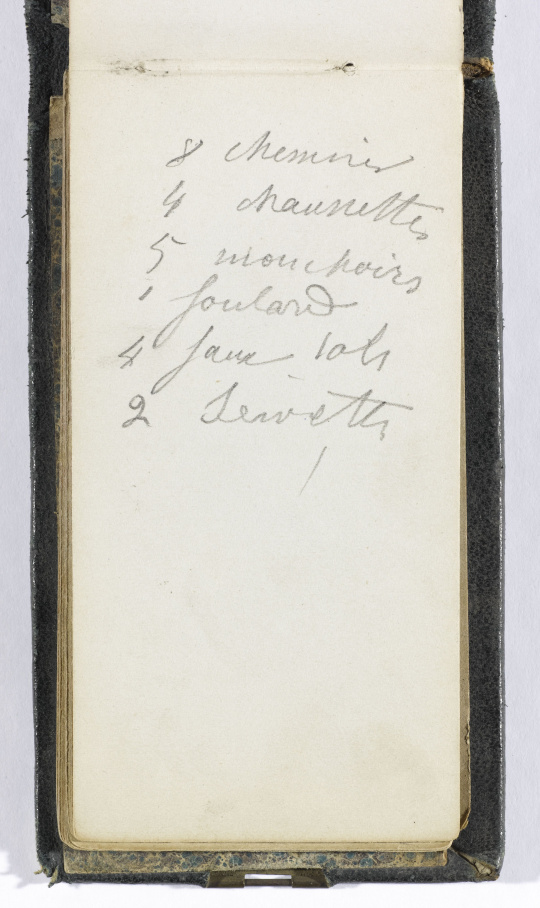 8 chemises
4 chaussettes
5 mouchoirs
1 foulard
4 faux cols
2 serviettes